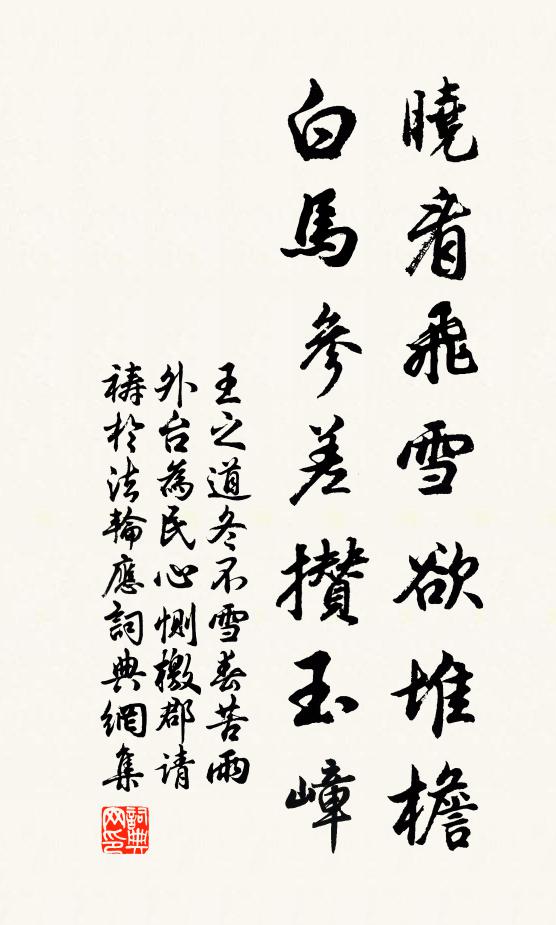 曉看飛雪欲堆檐
白馬參差攢玉嶂
王之道冬不雪春苦雨
外台為民心惻檄郡請
禱於法輪應詞典網集
詞典
网印